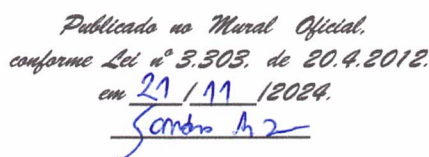 Publicado no Mural Oficial,
conforme Lei nº 3.303, de 20.4.2012,
em 21 / 11 /2024.